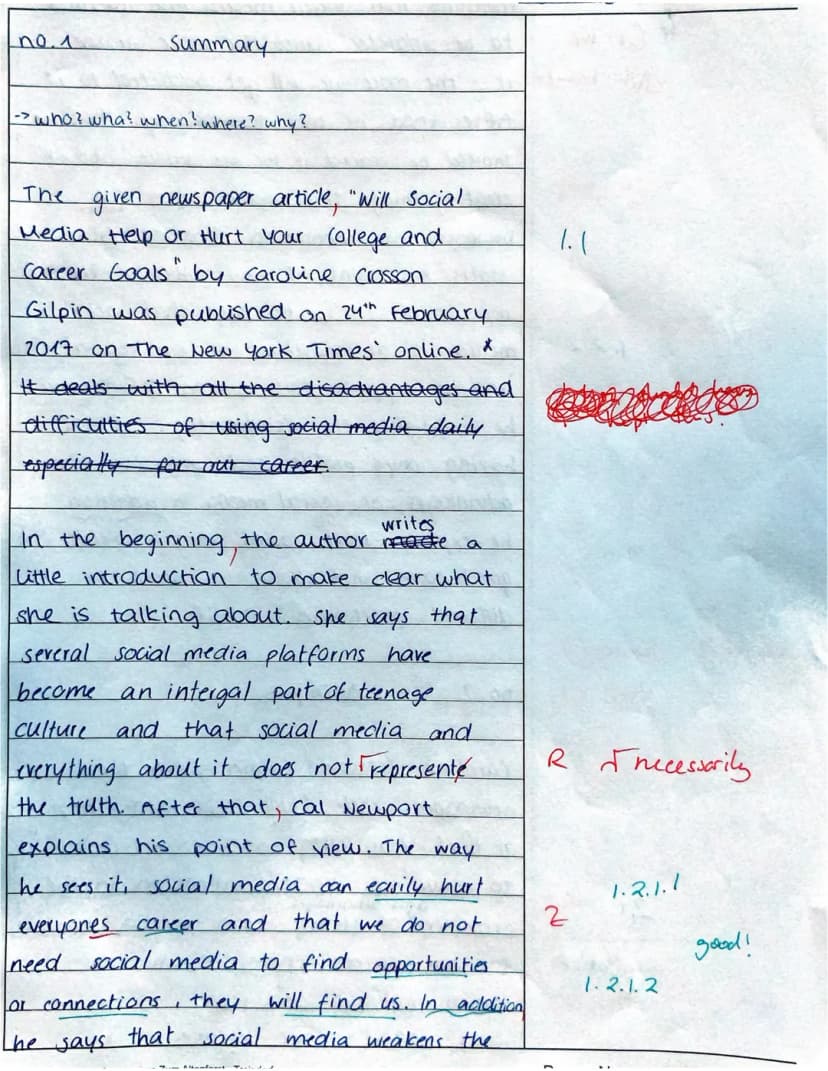 no. 1 Summary
-> who? wha? when? where? why?
The given newspaper article, "Will Social
Media Help or Hurt your College and
Career Goals" by Caroline Crosson
Gilpin was published on 24th February
2017 on The New York Times' online. *
It deals with all the disadvantages and
difficulties of using social media daily
especially for our career.
In the beginning, the author made writes a
little introduction to make clear what
she is talking about. She says that
several social media platforms have
become an intergal part of teenage
culture and that social media and
everything about it does not represente
the truth. After that, Cal Newport
explains his point of view. The way
he sees it, social media can easily hurt
everyones career and that we do not
need social media to find opportunities
or connections, they will find us. In addition,
he says that social media weakens the
1.1
R necessarily
1.2.1.1
Z
good!
1.2.1.2